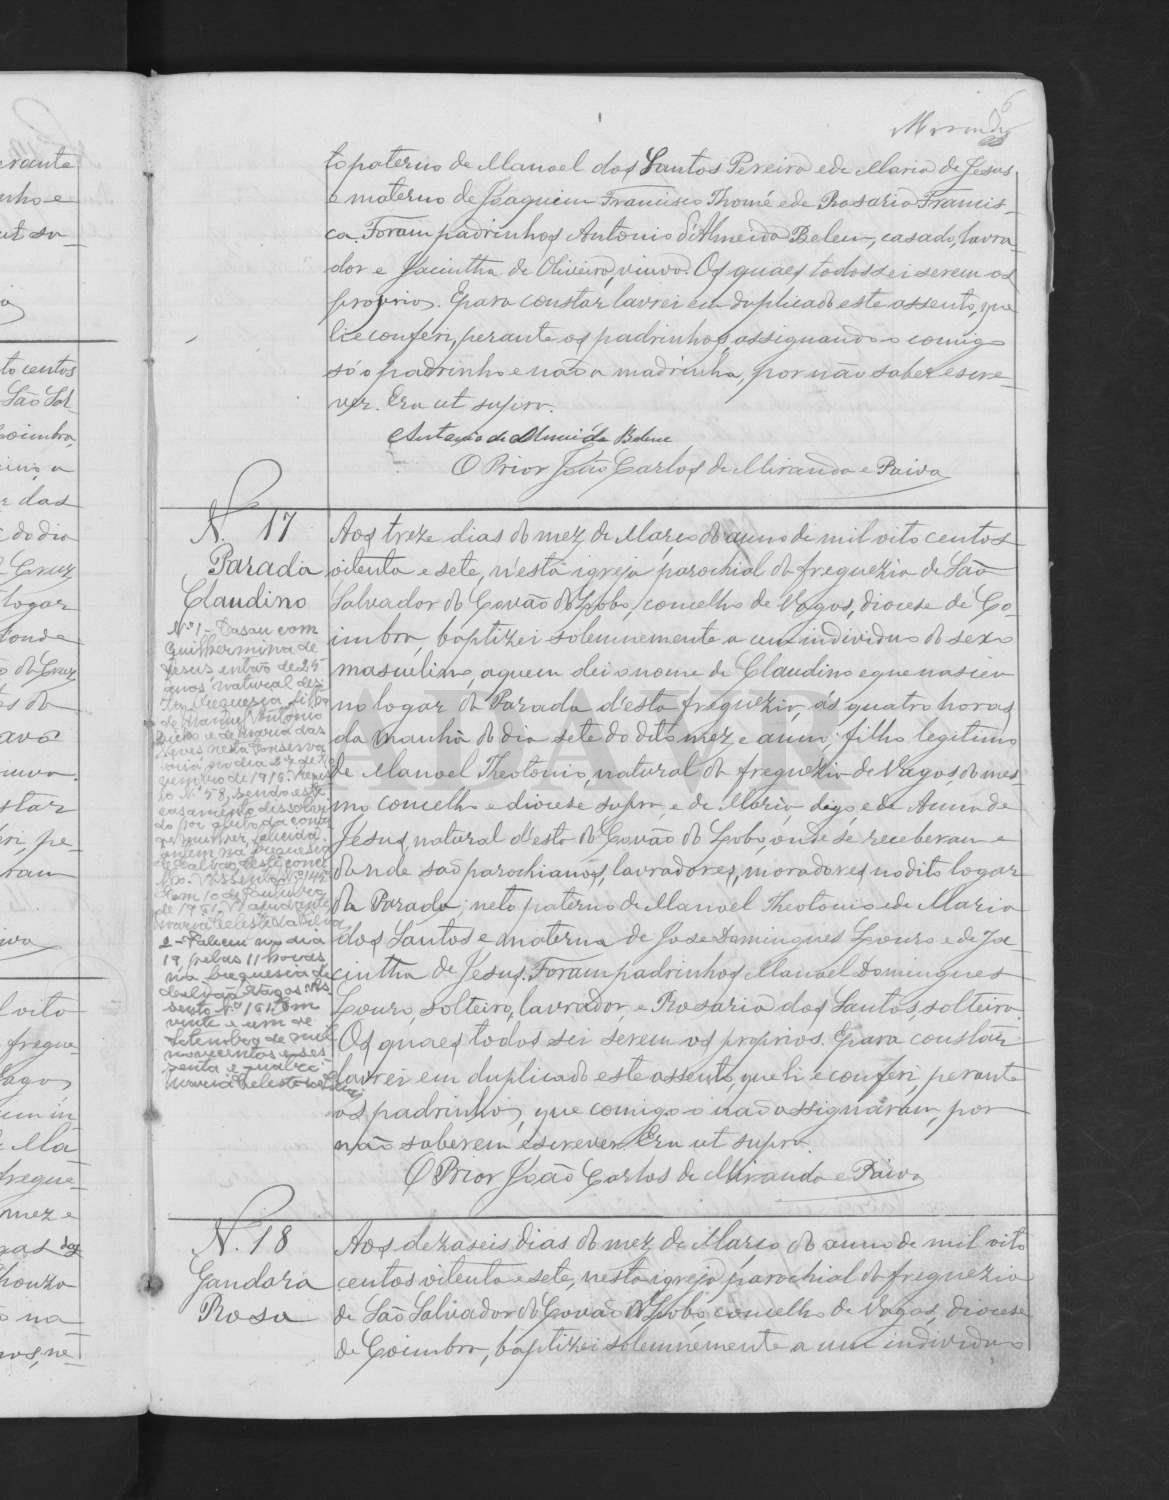 6
Miranda
to paterno de Manoel dos Santos Pereira e de Maria de Jesus
e materno de Joaquim Francisco Thomé e de Rosaria Francis-
ca. Foram padrinhos Antonio d'Almeida Belem, casado, lavra-
dor e Jacintha de Oliveira, viuva. Os quaes todos sei serem os
proprios. E para constar lavrei em duplicado este assento, que
li e conferi, perante os padrinhos assignando-o comigo
só o padrinho e não a madrinha, por não saber escre-
ver. Era ut supra.
Antonio de Almeida Belem
O Prior João Carlos de Miranda e Paiva
N. 17
Parada
Claudino
Nº 1 - Casou com
Guilhermina de
Jesus então de 25
anos natural des-
ta freguesia filha
de Manuel Antonio
e de Maria das
Neves na Conserva
toria no dia 27 de No
vembro de 1916. Regis
to Nº 58, sendo este
casamento dissolvi
do por obito da conju
ge mulher, falecida
na freguesia
de Calvão deste conce
lho. Assento Nº 145
Em 10 de Outubro
de 1951. O Ajudante
Maria Celeste da Silva
2 - Faleceu no dia
19, pelas 11 horas
na freguesia de
Calvão, Vagos. As
sento Nº 161. Em
vinte e um de
Setembro de mil
novecentos e ses
senta e quatro.
Maria Celeste da Silva
Aos treze dias do mez de Março do anno de mil oito centos
oitenta e sete, n'esta igreja parochial da freguezia de São
Salvador do Covão do Lobo, concelho de Vagos, diocese de Co-
imbra, baptizei solemnemente a um individuo do sexo
masculino, a quem dei o nome de Claudino e que nasceu
no logar da Parada d'esta freguezia, ás quatro horas
da manhã do dia sete do dito mez e anno; filho legitimo
de Manoel Theotonio, natural da freguezia de Vagos, do mes-
mo concelho e diocese supra, e de Maria, digo, e de Anna de
Jesus, natural d'esta do Covão do Lobo, onde se receberam e
donde são parochianos, lavradores, moradores no dito logar
da Parada; neto paterno de Manoel Theotonio e de Maria
dos Santos e materno de Jose Domingues Louro e de Ja-
cintha de Jesus. Foram padrinhos Manoel Domingues
Louro, solteiro, lavrador, e Rosaria dos Santos, solteira
Os quaes todos sei serem os proprios. E para constar
lavrei em duplicado este assento, que li e conferi, perante
os padrinhos, que comigo o não assignaram, por
não saberem escrever. Era ut supra.
O Prior João Carlos de Miranda e Paiva
N. 18
Gandara
Rosa
Aos dezaseis dias do mez de Março do anno de mil oito
centos oitenta e sete, nesta igreja parochial da freguezia
de São Salvador do Covão do Lobo, concelho de Vagos, diocese
de Coimbra, baptizei solemnemente a um individuo
ADAVR